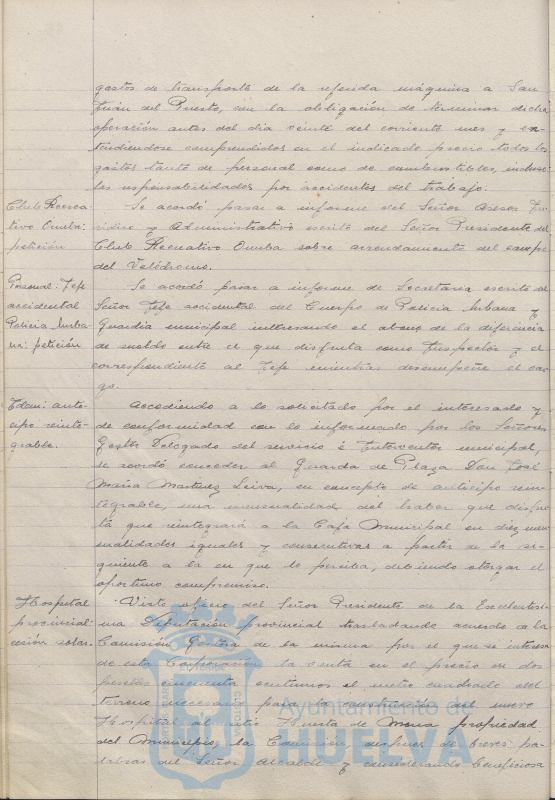 gastos de transporte de la referida máquina a San
Juan del Puerto, con la obligación de terminar dicha
operación antes del día veinte del corriente mes y en-
tendiendose comprendidos en el indicado precio todos los
gastos tanto de personal como de combustibles, incluso
las responsabilidades por accidentes del trabajo.
Club Recrea-
tivo Onuba:
petición
Se acordó pasar a informe del Señor Asesor Ju-
ridico y Administrativo escrito del Señor Presidente del
Club Recreativo Onuba sobre arrendamiento del campo
del Velódromo.
Personal: Jefe
accidental
Policia Urba-
na: petición
Se acordó pasar a informe de Secretaria escrito del
Señor Jefe accidental del Cuerpo de Policia Urbana y
Guardia municipal interesando el abono de la diferencia
de sueldo entre el que disfruta como Inspector y el
correspondiente al Jefe mientras desempeñe el car-
go.
Idem: anti-
cipo reinte-
grable.
Accediendo a lo solicitado por el interesado y
de conformidad con lo informado por los Señores
Gestor Delegado del servicio é Interventor municipal,
se acordó conceder al Guarda de Plaza Don José
Maria Martinez Leiva, en concepto de anticipo rein-
tegrable, una mensualidad del haber que disfru-
ta que reintegrará a la Caja Municipal en diez men-
sualidades iguales y consecutivas a partir de la si-
guiente a la en que lo perciba, debiendo otorgar el
oportuno compromiso.
Hospital
provincial:
cesión solar.
Visto oficio del Señor Presidente de la Excelentisi-
ma Diputación provincial trasladando acuerdo de la
Comisión Gestora de la misma por el que se interesa
de esta Corporación la venta en el precio de dos
pesetas cincuenta centimos el metro cuadrado del
terreno necesario para la construcción del nuevo
Hospital al sitio Huerta de Mena propiedad
del Municipio, la Comisión, despues de breves pa-
labras del Señor Alcalde y considerando beneficiosa
Ayuntamiento de
HUELVA